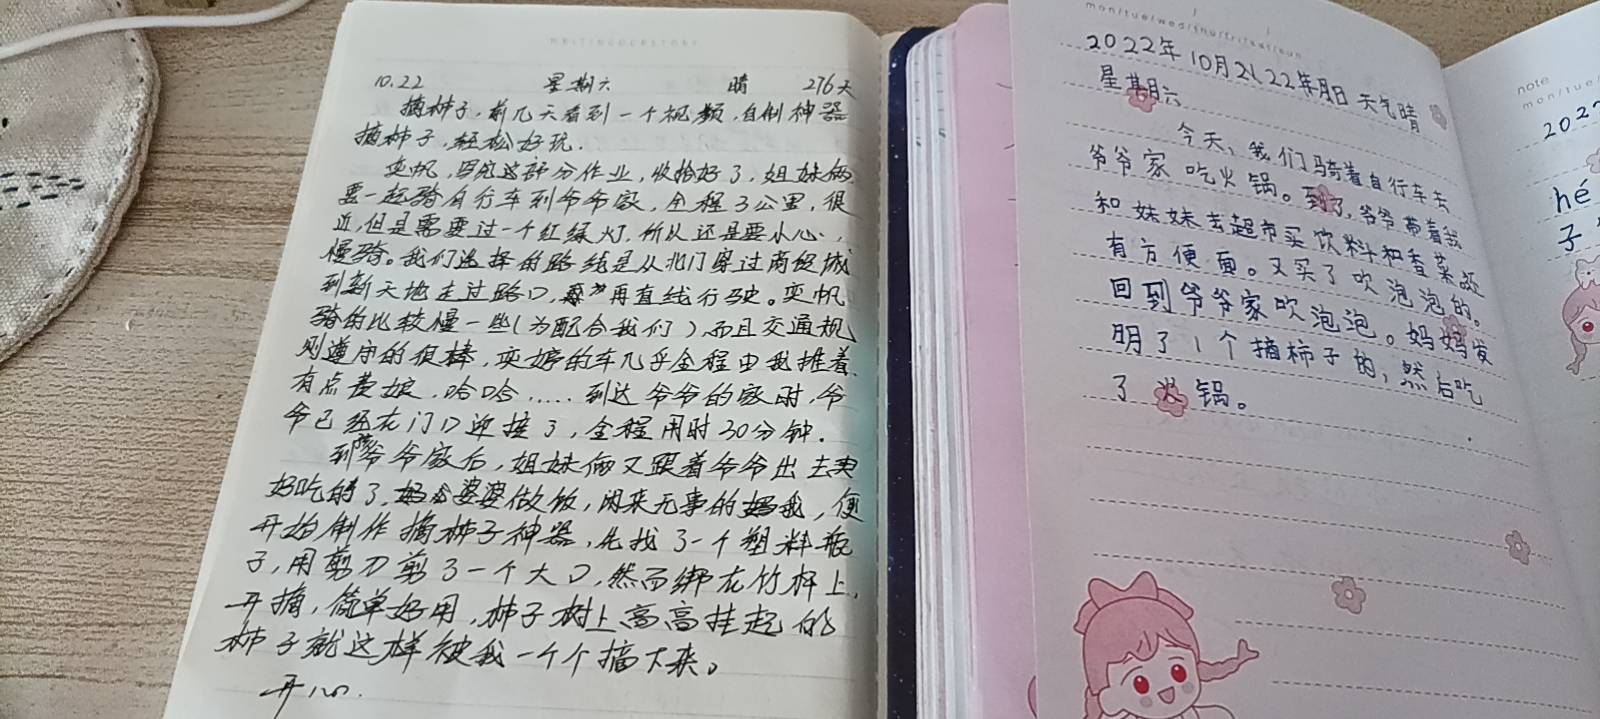 WRITING OUR STORY
10.22 星期六 晴 276天
摘柿子,前几天看到一个视频,自制神器
摘柿子,轻松好玩.
奕帆,写完这部分作业,收拾好了,姐妹俩
要一起骑自行车到爷爷家,全程3公里,很
近,但是需要过一个红绿灯,所以还是要小心,
慢骑。我们选择的路线是从北门穿过商贸城
到新天地走过路口,再直线行驶。奕帆
骑的比较慢一些(为配合我们)而且交通规
则遵守的很棒,奕婷的车几乎全程由我推着
有点费娘,哈哈……到达爷爷的家时,爷
爷已经在门口迎接了,全程用时30分钟.
到爷爷家后,姐妹俩又跟着爷爷出去买
好吃的了,婆婆做饭,闲来无事的我,便
开始制作摘柿子神器,先找了一个塑料瓶
子,用剪刀剪了一个大口,然而绑在竹杆上,
开摘,简单好用,柿子树上高高挂起的
柿子就这样被我一个个摘下来。
开心.
mon/tue/wed/thu/fri/sat/sun
2022年10月21,22年月日 天气晴
星期六
今天,我们骑着自行车去
爷爷家吃火锅。到了,爷爷带着我
和妹妹去超市买饮料和香菜还
有方便面。又买了吹泡泡的。
回到爷爷家吹泡泡。妈妈发
明了1个摘柿子的,然后吃
了火锅。
note
mon/tue/
202
hé
子